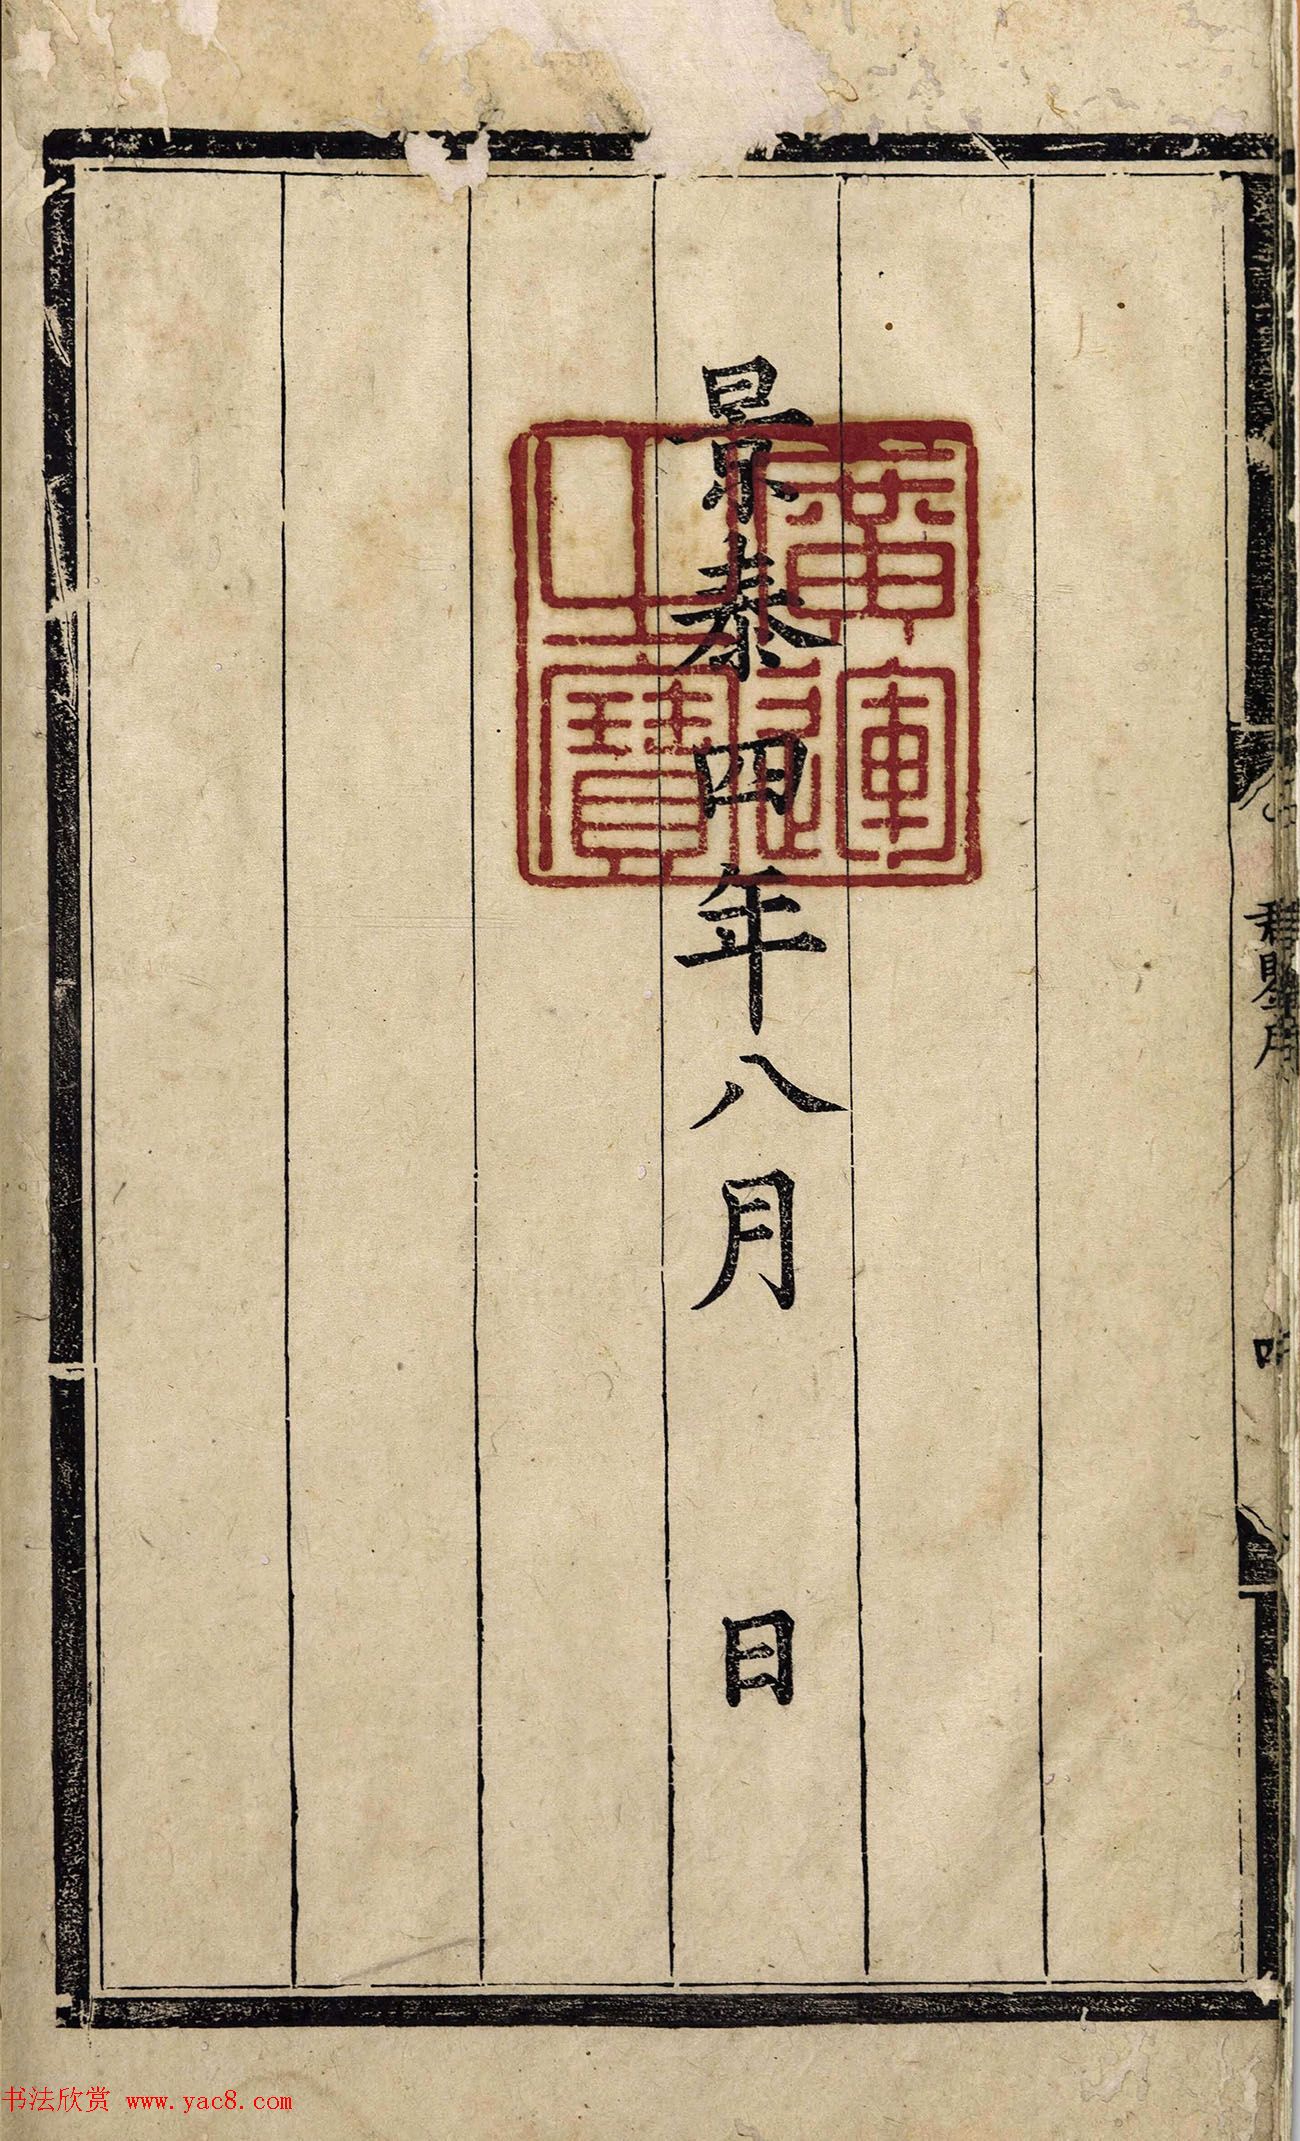 景泰四年八月　日
廣運
之寶
君鑒序
书法欣赏 www.yac8.com